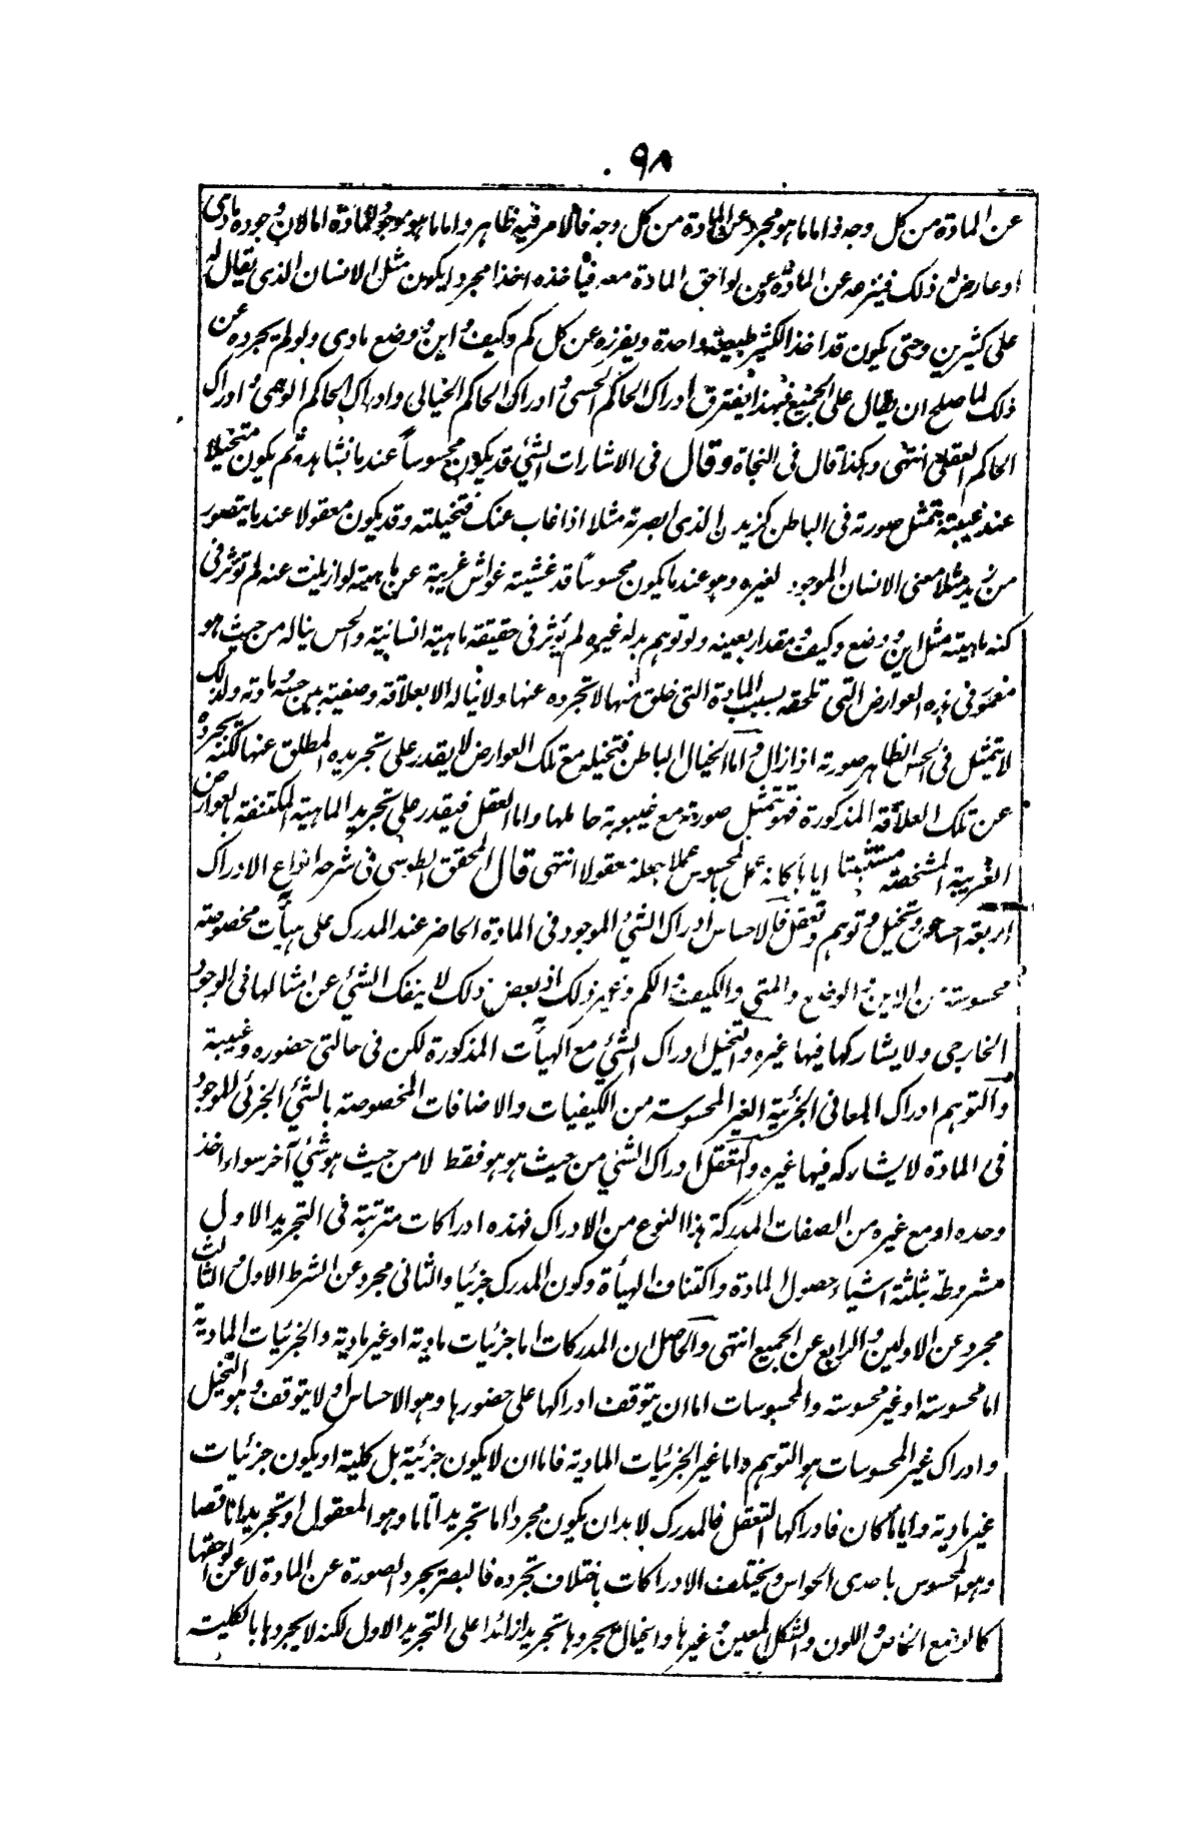 ٩٨
عن المادة من كل وجه واما ما هو مجرد عن المادة من كل وجه فالامر فيه ظاهر واما ما هو موجود للمادة اما لان وجوده مادى
او عارض له ذلك فينزعه عن المادة وعن لواحق المادة معه فيأخذه اخذا مجردا يكون مثل الانسان الذى يقال له
على كثيرين وحتى يكون قد اخذ الكثير طبيعة واحدة ويفرزه عن كل كم وكيف واين ووضع مادى ولو لم يجرده عن
ذلك لما صلح ان يقال على الجميع فبهذا يفترق ادراك الحاكم الحسى وادراك الحاكم الخيالى وادراك الحاكم الوهمى وادراك
الحاكم العقلى انتهى وهكذا قال فى النجاة وقال فى الاشارات الشئ قد يكون محسوساً عند ما يشاهد ثم يكون متخيلا
عند غيبته بتمثل صورته فى الباطن كزيد الذى ابصرته مثلا اذا غاب عنك فتخيلته وقد يكون معقولا عند ما يتصور
من زيد مثلا معنى الانسان الموجود لغيره وهو عند ما يكون محسوساً قد غشيته غواش غريبة عن ماهيته لو ازيلت عنه لم تؤثر فى
كنه ماهيته مثل اين ووضع وكيف ومقدار بعينه ولو توهم بدله غيره لم يؤثر فى حقيقة ماهية انسانيته والحس يناله من حيث هو
مغمور فى هذه العوارض التى تلحقه بسبب المادة التى خلق منها لا تجرده عنها ولا يناله الا بعلاقة وضعية بين حسه ومادته ولذلك
لا يتمثل فى الحس الظاهر صورته اذا زال واما الخيال الباطن فتخيله مع تلك العوارض لا يقدر على تجريده المطلق عنها لكنه يجرده
عن تلك العلاقة المذكورة فهو يتمثل صورته مع غيبوبة حاملها واما العقل فيقدر على تجريد الماهية المكتنفة بالعوارض
الغريبة المشخصة مستثبتا اياها كانه عمل بالمحسوس عملا جعله معقولا انتهى قال المحقق الطوسى فى شرحه انواع الادراك
اربعة احساس وتخيل وتوهم وتعقل فالاحساس ادراك الشئ الموجود فى المادة الحاضر عند المدرك على هيأت مخصوصة
محسوسة من الاين والوضع والمتى والكيف والكم وغير ذلك اذ بعض ذلك لا ينفك الشئ عن امثالها فى الوجود
الخارجى ولا يشاركها فيها غيره والتخيل ادراك الشئ مع الهيأت المذكورة لكن فى حالتى حضوره وغيبته
والتوهم ادراك المعانى الجزئية الغير المحسوسة من الكيفيات والاضافات المخصوصة بالشئ الجزئى الموجود
فى المادة لا يشاركه فيها غيره والتعقل ادراك الشئ من حيث هو هو فقط لا من حيث هو شئ آخر سواء اخذ
وحده او مع غيره من الصفات المدركة هذا النوع من الادراك فهذه ادراكات مترتبة فى التجريد الاول
مشروطة بثلثة اشياء حصول المادة واكتناف الهيأة وكون المدرك جزئيا والثانى مجرد عن الشرط الاول والثالث
مجرد عن الاولين والرابع عن الجميع انتهى والحاصل ان المدركات اما جزئيات مادية او غير مادية والجزئيات المادية
اما محسوسة او غير محسوسة والمحسوسات اما ان يتوقف ادراكها على حضورها وهو الاحساس او لا يتوقف وهو التخيل
وادراك غير المحسوسات هو التوهم واما غير الجزئيات المادية فاما ان لا يكون جزئية بل كلية او يكون جزئيات
غير مادية وايا ما كان فادراكها التعقل فالمدرك لا بد ان يكون مجردا اما تجريدا تاما وهو المعقول او تجريدا ناقصا
وهو المحسوس باحدى الحواس ويختلف الادراكات باختلاف تجرده فالبصر يجرد الصورة عن المادة لا عن لواحقها
كالوضع الخاص واللون والشكل المعين وغيرها والخيال يجردها تجريدا زائدا على التجريد الاول لكنه لا يجردها بالكلية